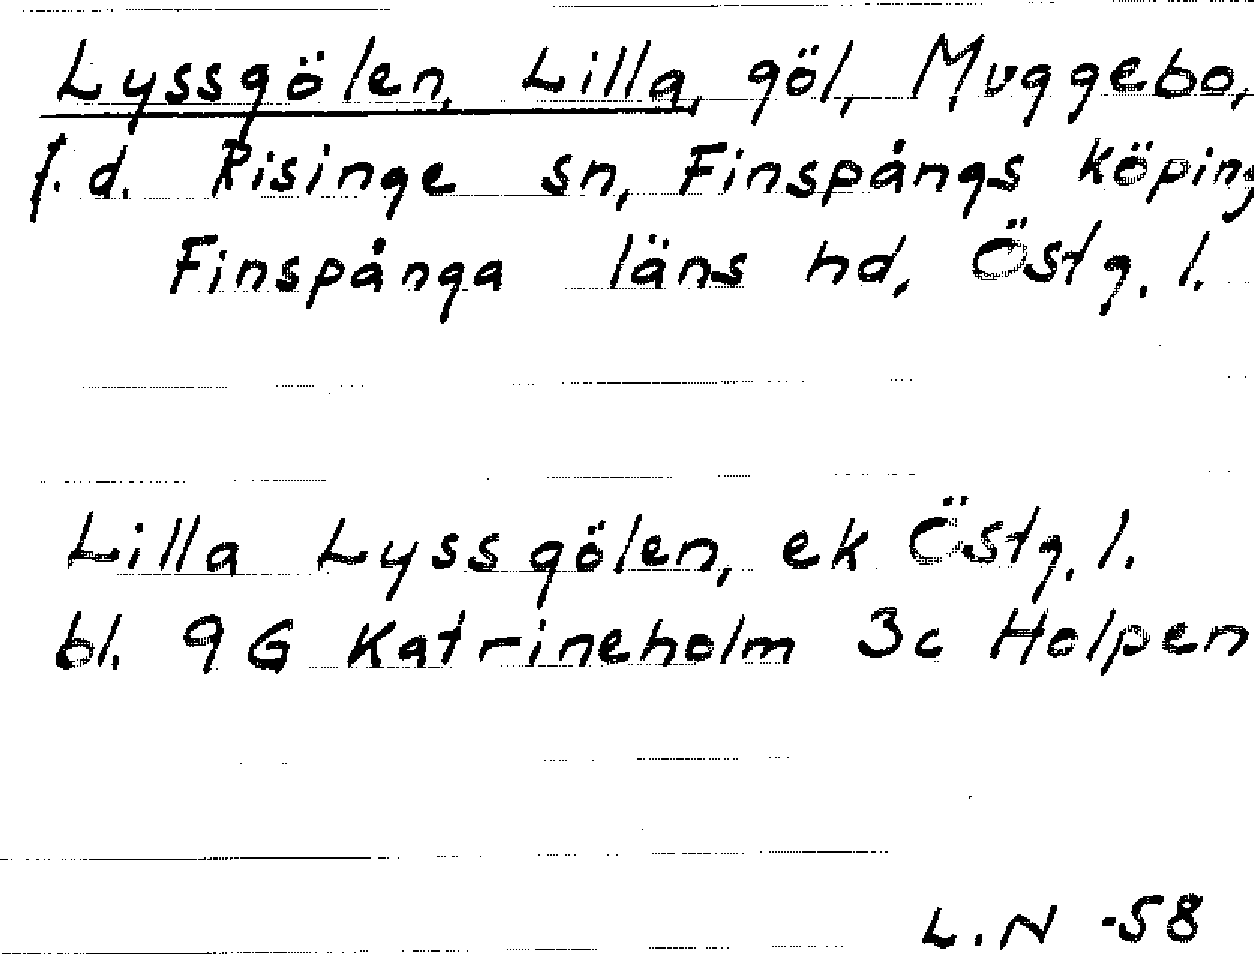 Lyssgölen, Lilla, göl, Muggebo,
f.d. Risinge sn, Finspångs köping
Finspånga läns hd, Östg. l.
Lilla Lyssgölen, ek Östg. l.
bl. 9G Katrineholm 3c Holpen
L.N -58